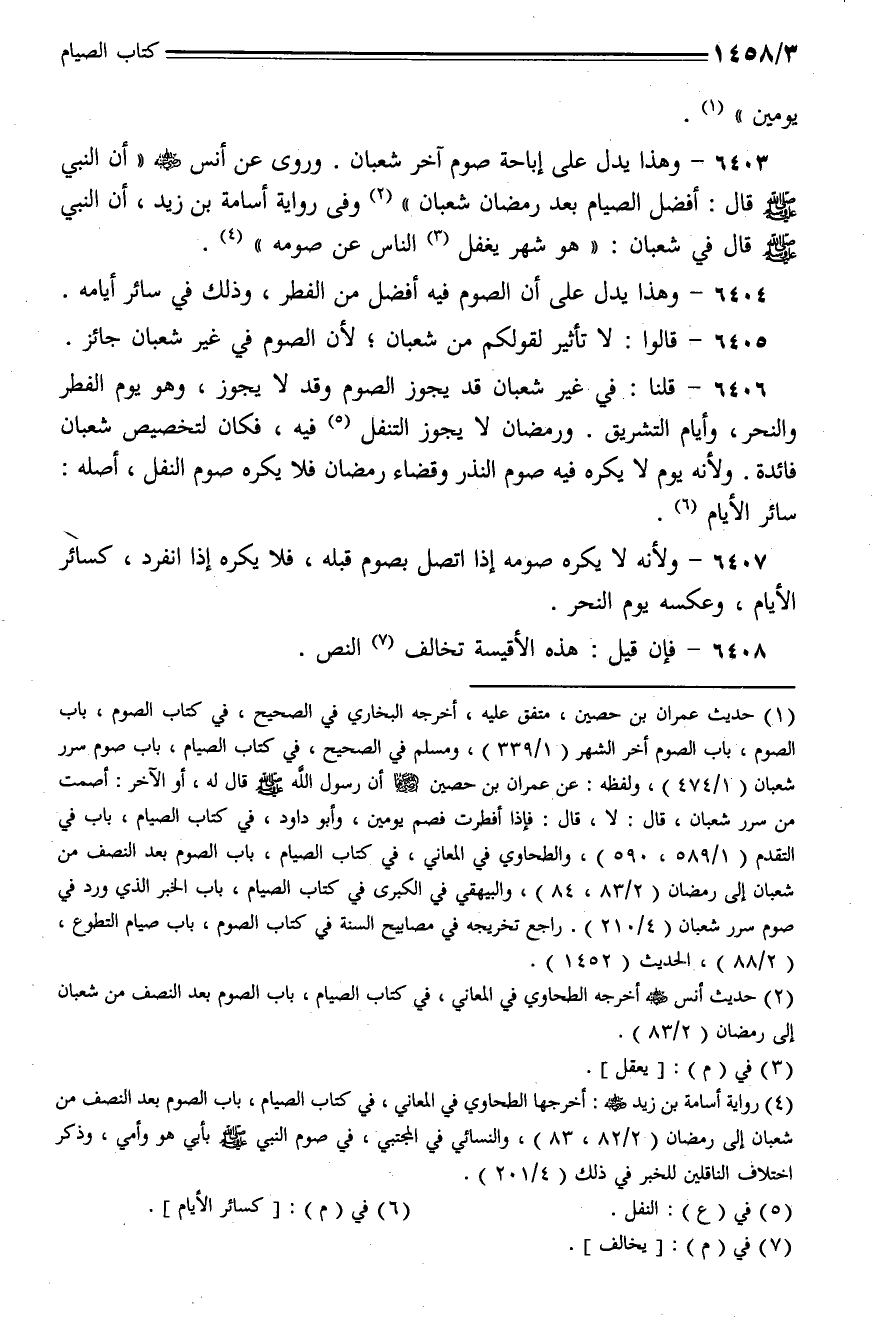 ١٤٥٨/٣ كتاب الصيام
يومين » (١) .
٦٤٠٣ – وهذا يدل على إباحة صوم آخر شعبان . وروى عن أنس ﵁ « أن النبي
ﷺ قال : أفضل الصيام بعد رمضان شعبان » (٢) وفى رواية أسامة بن زيد ، أن النبي
ﷺ قال في شعبان : « هو شهر يغفل (٣) الناس عن صومه » (٤) .
٦٤٠٤ – وهذا يدل على أن الصوم فيه أفضل من الفطر ، وذلك في سائر أيامه .
٦٤٠٥ – قالوا : لا تأثير لقولكم من شعبان ؛ لأن الصوم في غير شعبان جائز .
٦٤٠٦ – قلنا : في غير شعبان قد يجوز الصوم وقد لا يجوز ، وهو يوم الفطر
والنحر، وأيام التشريق . ورمضان لا يجوز التنفل (٥) فيه ، فكان لتخصيص شعبان
فائدة . ولأنه يوم لا يكره فيه صوم النذر وقضاء رمضان فلا يكره صوم النفل ، أصله :
سائر الأيام (٦) .
٦٤٠٧ – ولأنه لا يكره صومه إذا اتصل بصوم قبله ، فلا يكره إذا انفرد ، كسائر
الأيام ، وعكسه يوم النحر .
٦٤٠٨ – فإن قيل : هذه الأقيسة تخالف (٧) النص .
(١) حديث عمران بن حصين ، متفق عليه ، أخرجه البخاري في الصحيح ، في كتاب الصوم ، باب
الصوم ، باب الصوم أخر الشهر ( ٣٣٩/١ ) ، ومسلم في الصحيح ، في كتاب الصيام ، باب صوم سرر
شعبان ( ٤٧٤/١ ) ، ولفظه : عن عمران بن حصين ﵄ أن رسول اللَّه ﷺ قال له ، أو الآخر : أصمت
من سرر شعبان ، قال : لا ، قال : فإذا أفطرت فصم يومين ، وأبو داود ، في كتاب الصيام ، باب في
التقدم ( ٥٨٩/١ ، ٥٩٠ ) ، والطحاوي في المعاني ، في كتاب الصيام ، باب الصوم بعد النصف من
شعبان إلى رمضان ( ٨٣/٢ ، ٨٤ ) ، والبيهقي في الكبرى في كتاب الصيام ، باب الخبر الذي ورد في
صوم سرر شعبان ( ٢١٠/٤ ) . راجع تخريجه في مصابيح السنة في كتاب الصوم ، باب صيام التطوع ،
( ٨٨/٢ ) ، الحديث ( ١٤٥٢ ) .
(٢) حديث أنس ﵁ أخرجه الطحاوي في المعاني ، في كتاب الصيام ، باب الصوم بعد النصف من شعبان
إلى رمضان ( ٨٣/٢ ) .
(٣) في ( م ) : [ يعقل ] .
(٤) رواية أسامة بن زيد ﵁ : أخرجها الطحاوي في المعاني ، في كتاب الصيام ، باب الصوم بعد النصف من
شعبان إلى رمضان ( ٨٢/٢ ، ٨٣ ) ، والنسائي في المجتبي ، في صوم النبي ﷺ بأبي هو وأمي ، وذكر
اختلاف الناقلين للخبر في ذلك ( ٢٠١/٤ ) .
(٥) في ( ع ) : النفل . (٦) في ( م ) : [ كسائر الأيام ] .
(٧) في ( م ) : [ يخالف ] .